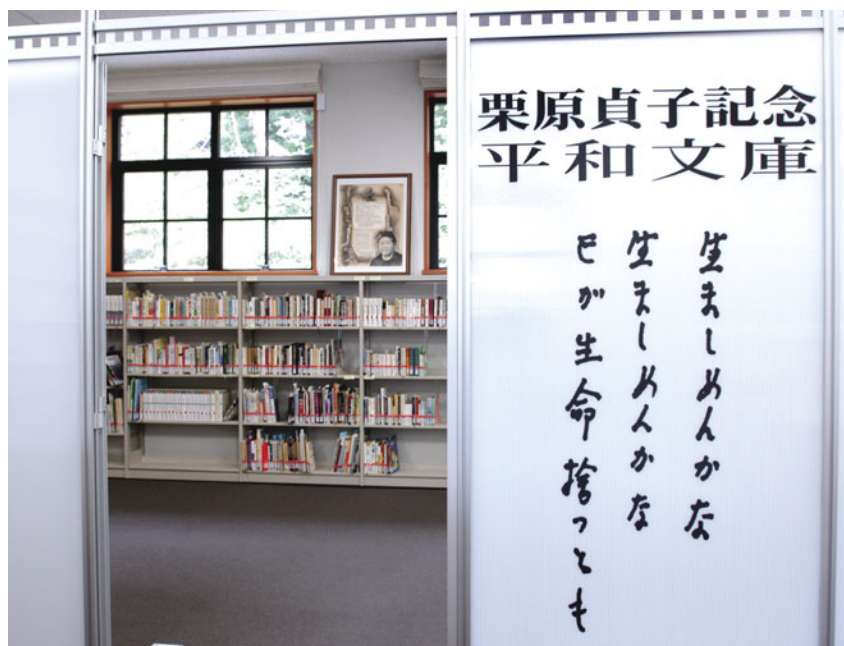 栗原貞子記念
平和文庫
生ましめんかな
生ましめんかな
己が生命捨つとも